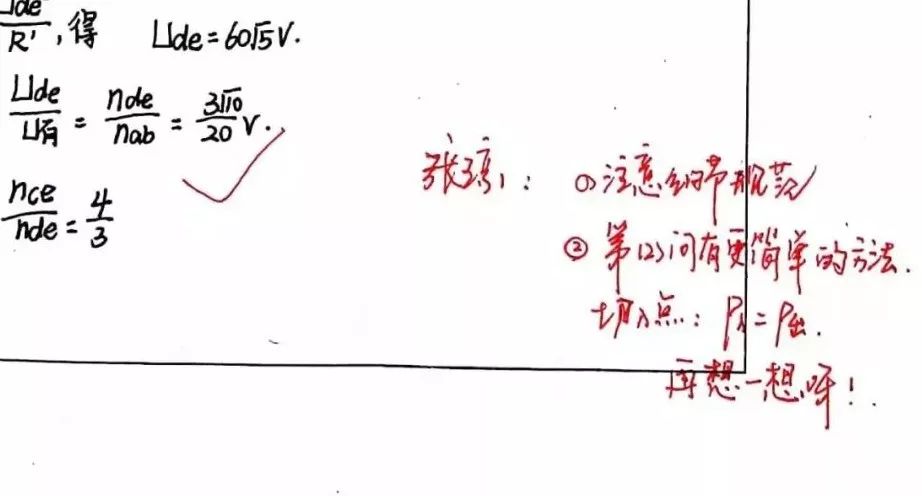 Ude/R′, 得 Ude=60√5V.
Ude/U有 = nde/nab = 3√10/20 V.
nce/nde = 4/3
张琼: ①注意细节规范
②第(2)问有更简单的方法.
切入点: P入=P出.
再想一想呀!